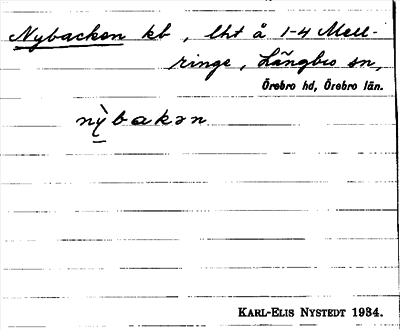 Nybacken kb, lht å 1-4 Mell-
ringe, Längbro sn,
Örebro hd, Örebro län.
nỳbakən
KARL-ELIS NYSTEDT 1934.